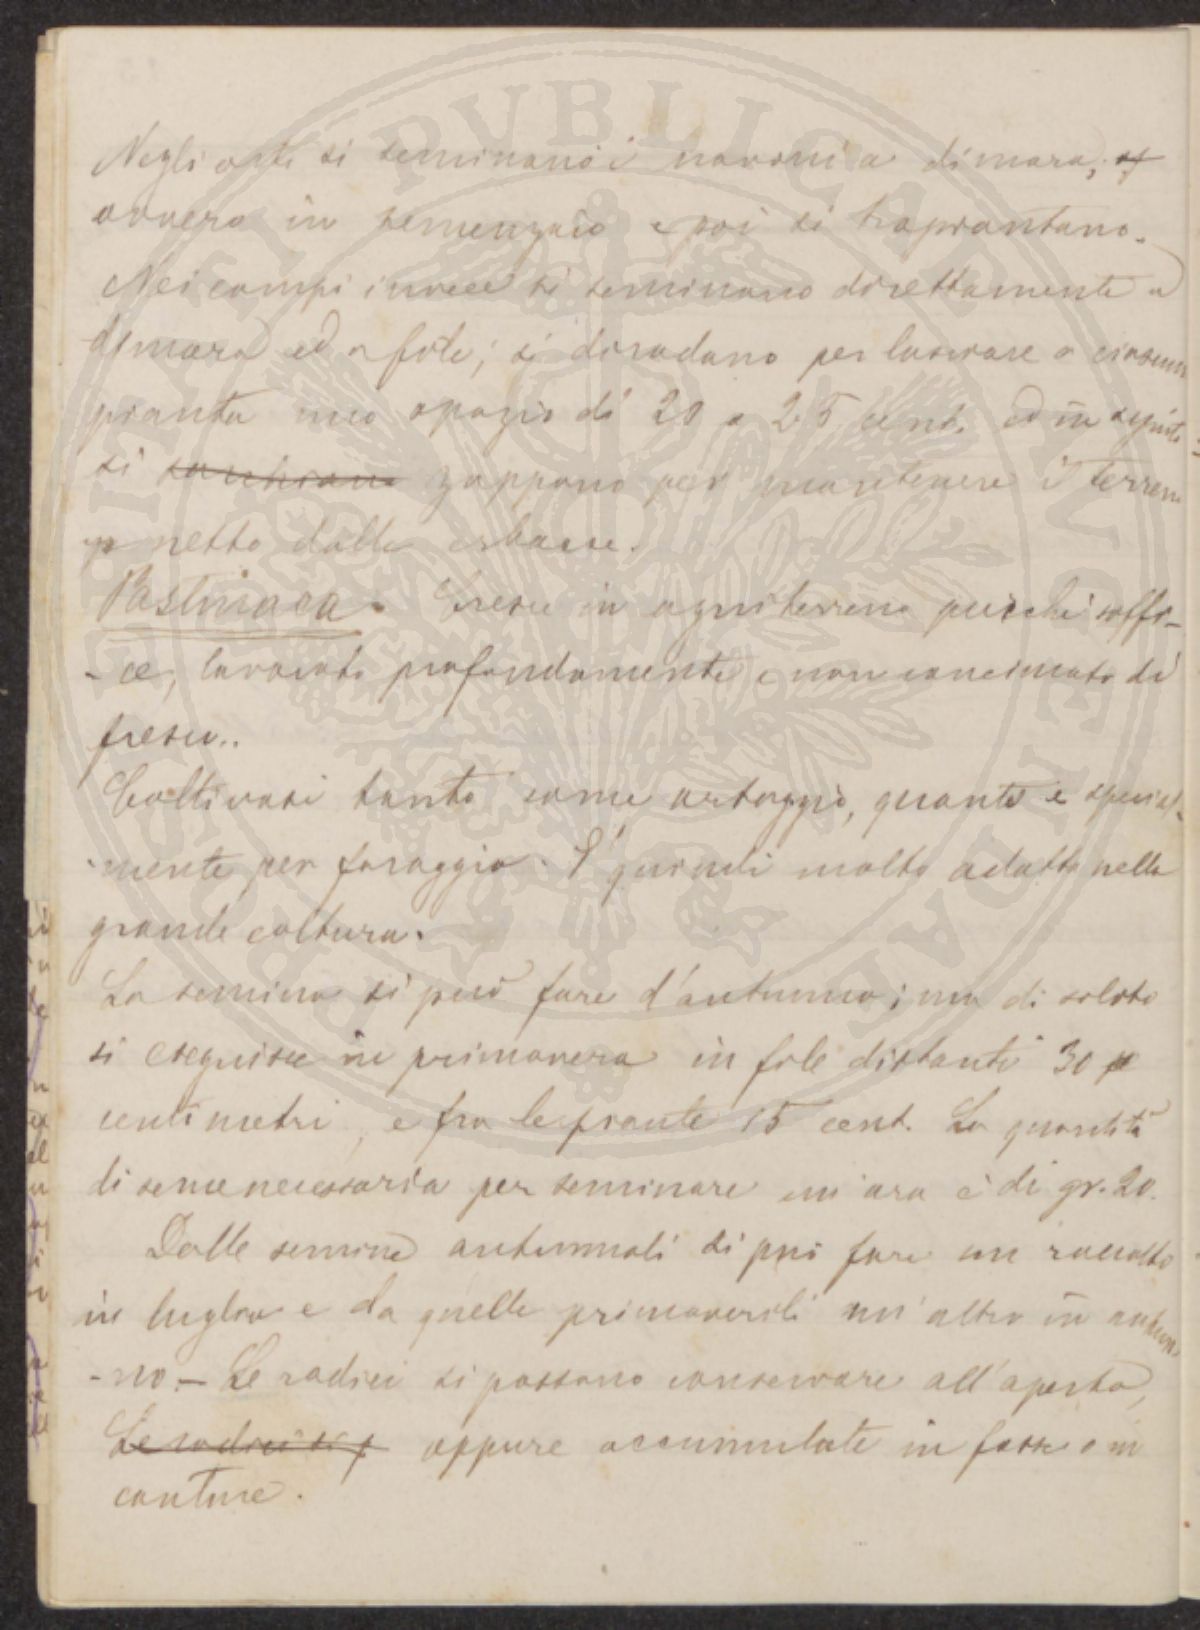 Negli orti si seminano i navoni a dimora;
ovvero in semenzaio e poi si trapiantano.
Nei campi invece si seminano direttamente a
dimora ed a file; si diradano per lasciare a ciascuna
pianta uno spazio di 20 a 25 cent. ed in seguito
si sarchiano zappano per mantenere il terreno
netto dalle erbacce.
Pastinaca. Cresce in ogni terreno purchè soffi-
-ce, lavorato profondamente e non concimato di
fresco..
Coltivasi tanto come ortaggio, quanto e special-
-mente per foraggio. E' quindi molto adatta nella
grande coltura.
La semina si può fare d'autunno; ma di solito
si eseguisce in primavera in file distanti 30
centimetri, e fra le piante 15 cent. La quantità
di seme necessaria per seminare un'ara è di gr. 20.
Dalle semine autunnali si può fare un raccolto
in luglio e da quelle primaverili un'altro in autun-
-no. - Le radici si possono conservare all'aperto,
Le radici si p oppure accumulate in fosse o in
cantine.
PROSPERITATI PUBLICAE AUGENDAE